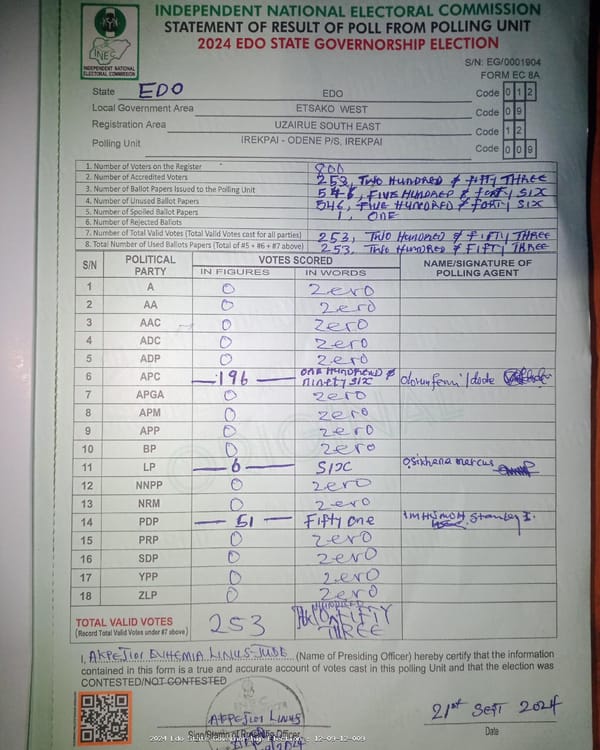 INDEPENDENT NATIONAL ELECTORAL COMMISSION
STATEMENT OF RESULT OF POLL FROM POLLING UNIT
2024 EDO STATE GOVERNORSHIP ELECTION
INEC
INDEPENDENT NATIONAL ELECTORAL COMMISSION
S/N: EG/0001904
FORM EC 8A
State EDO EDO Code 0 1 2
Local Government Area ETSAKO WEST Code 0 9
Registration Area UZAIRUE SOUTH EAST Code 1 2
Polling Unit IREKPAI - ODENE P/S, IREKPAI Code 0 0 9
1. Number of Voters on the Register 800
2. Number of Accredited Voters 253, TWO HUNDRED & FIFTY THREE
3. Number of Ballot Papers Issued to the Polling Unit 546, FIVE HUNDRED & FORTY SIX
4. Number of Unused Ballot Papers 546, FIVE HUNDRED & FORTY SIX
5. Number of Spoiled Ballot Papers 1, ONE
6. Number of Rejected Ballots
7. Number of Total Valid Votes (Total Valid Votes cast for all parties) 253, TWO HUNDRED & FIFTY THREE
8. Total Number of Used Ballots Papers (Total of #5 + #6 + #7 above) 253, TWO HUNDRED & FIFTY THREE
S/N POLITICAL PARTY VOTES SCORED NAME/SIGNATURE OF POLLING AGENT
IN FIGURES IN WORDS
1 A 0 zero
2 AA 0 zero
3 AAC 0 zero
4 ADC 0 zero
5 ADP 0 zero
6 APC 196 ONE HUNDRED & NINETY SIX
7 APGA 0 zero
8 APM 0 zero
9 APP 0 zero
10 BP 0 zero
11 LP 6 SIX Osikhena marcus
12 NNPP 0 zero
13 NRM 0 zero
14 PDP 51 Fifty one Stanley I.
15 PRP 0 zero
16 SDP 0 zero
17 YPP 0 zero
18 ZLP 0 zero
TOTAL VALID VOTES 253 FIFTY THREE
(Record Total Valid Votes under #7 above)
I, AKPEJIOR EUHEMIA LINUS-JUDE (Name of Presiding Officer) hereby certify that the information
contained in this form is a true and accurate account of votes cast in this polling Unit and that the election was
CONTESTED/NOT CONTESTED
AKPEJIOR LINUS
21st SEPT 2024
Date
2024 Edo State Governorship Election - 12-09-12-009